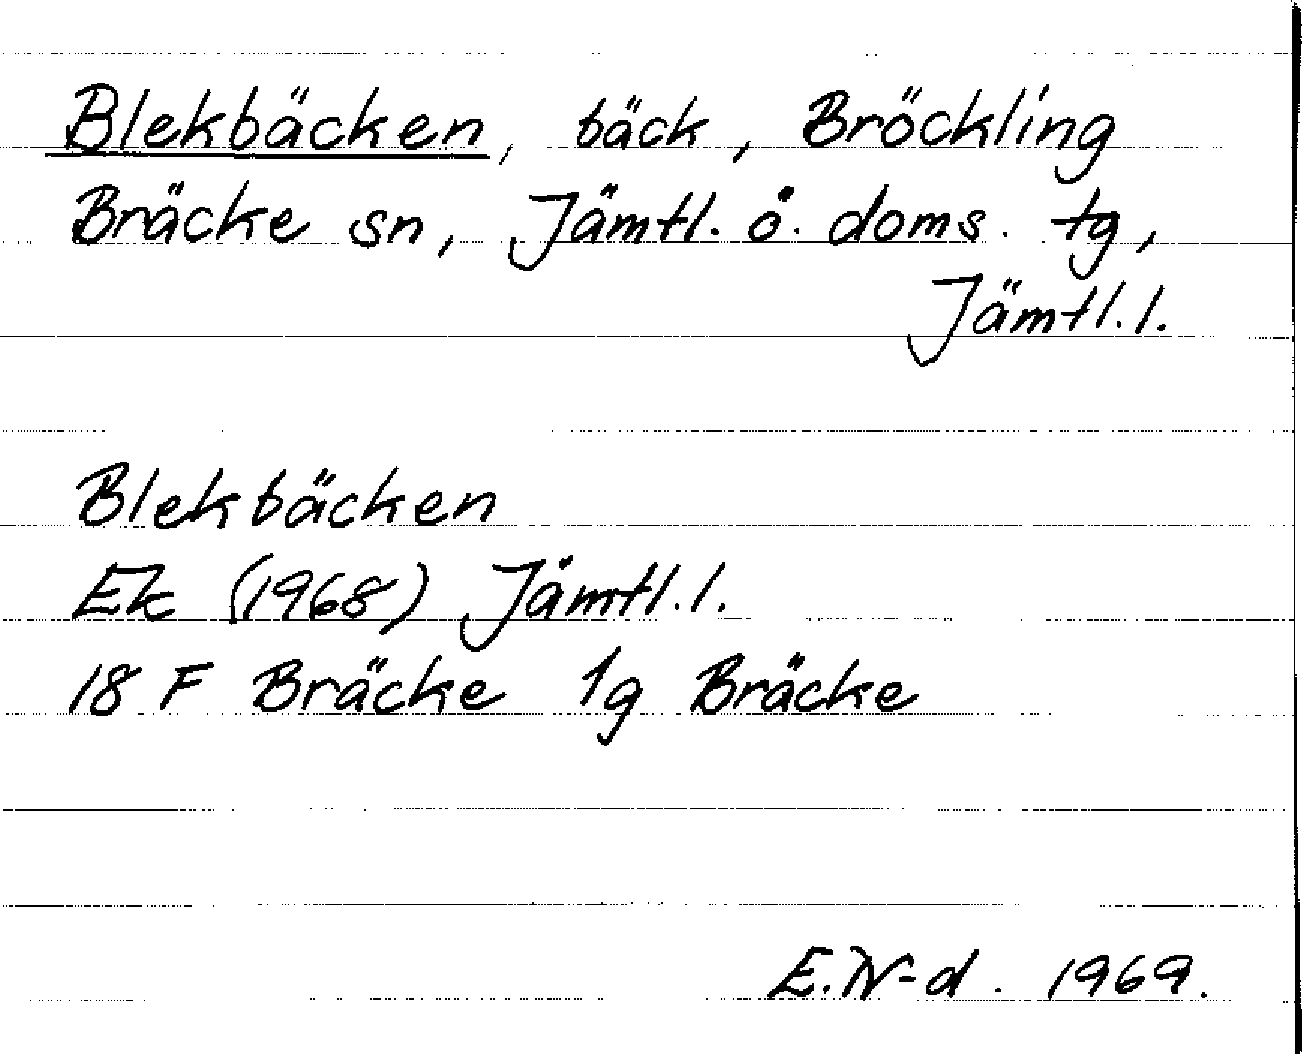 Blekbäcken, bäck, Bröckling
Bräcke sn, Jämtl. ö. doms. tg,
Jämtl. l.
Blekbäcken
Ek (1968) Jämtl. l.
18 F Bräcke 1g Bräcke
E. N-d. 1969.